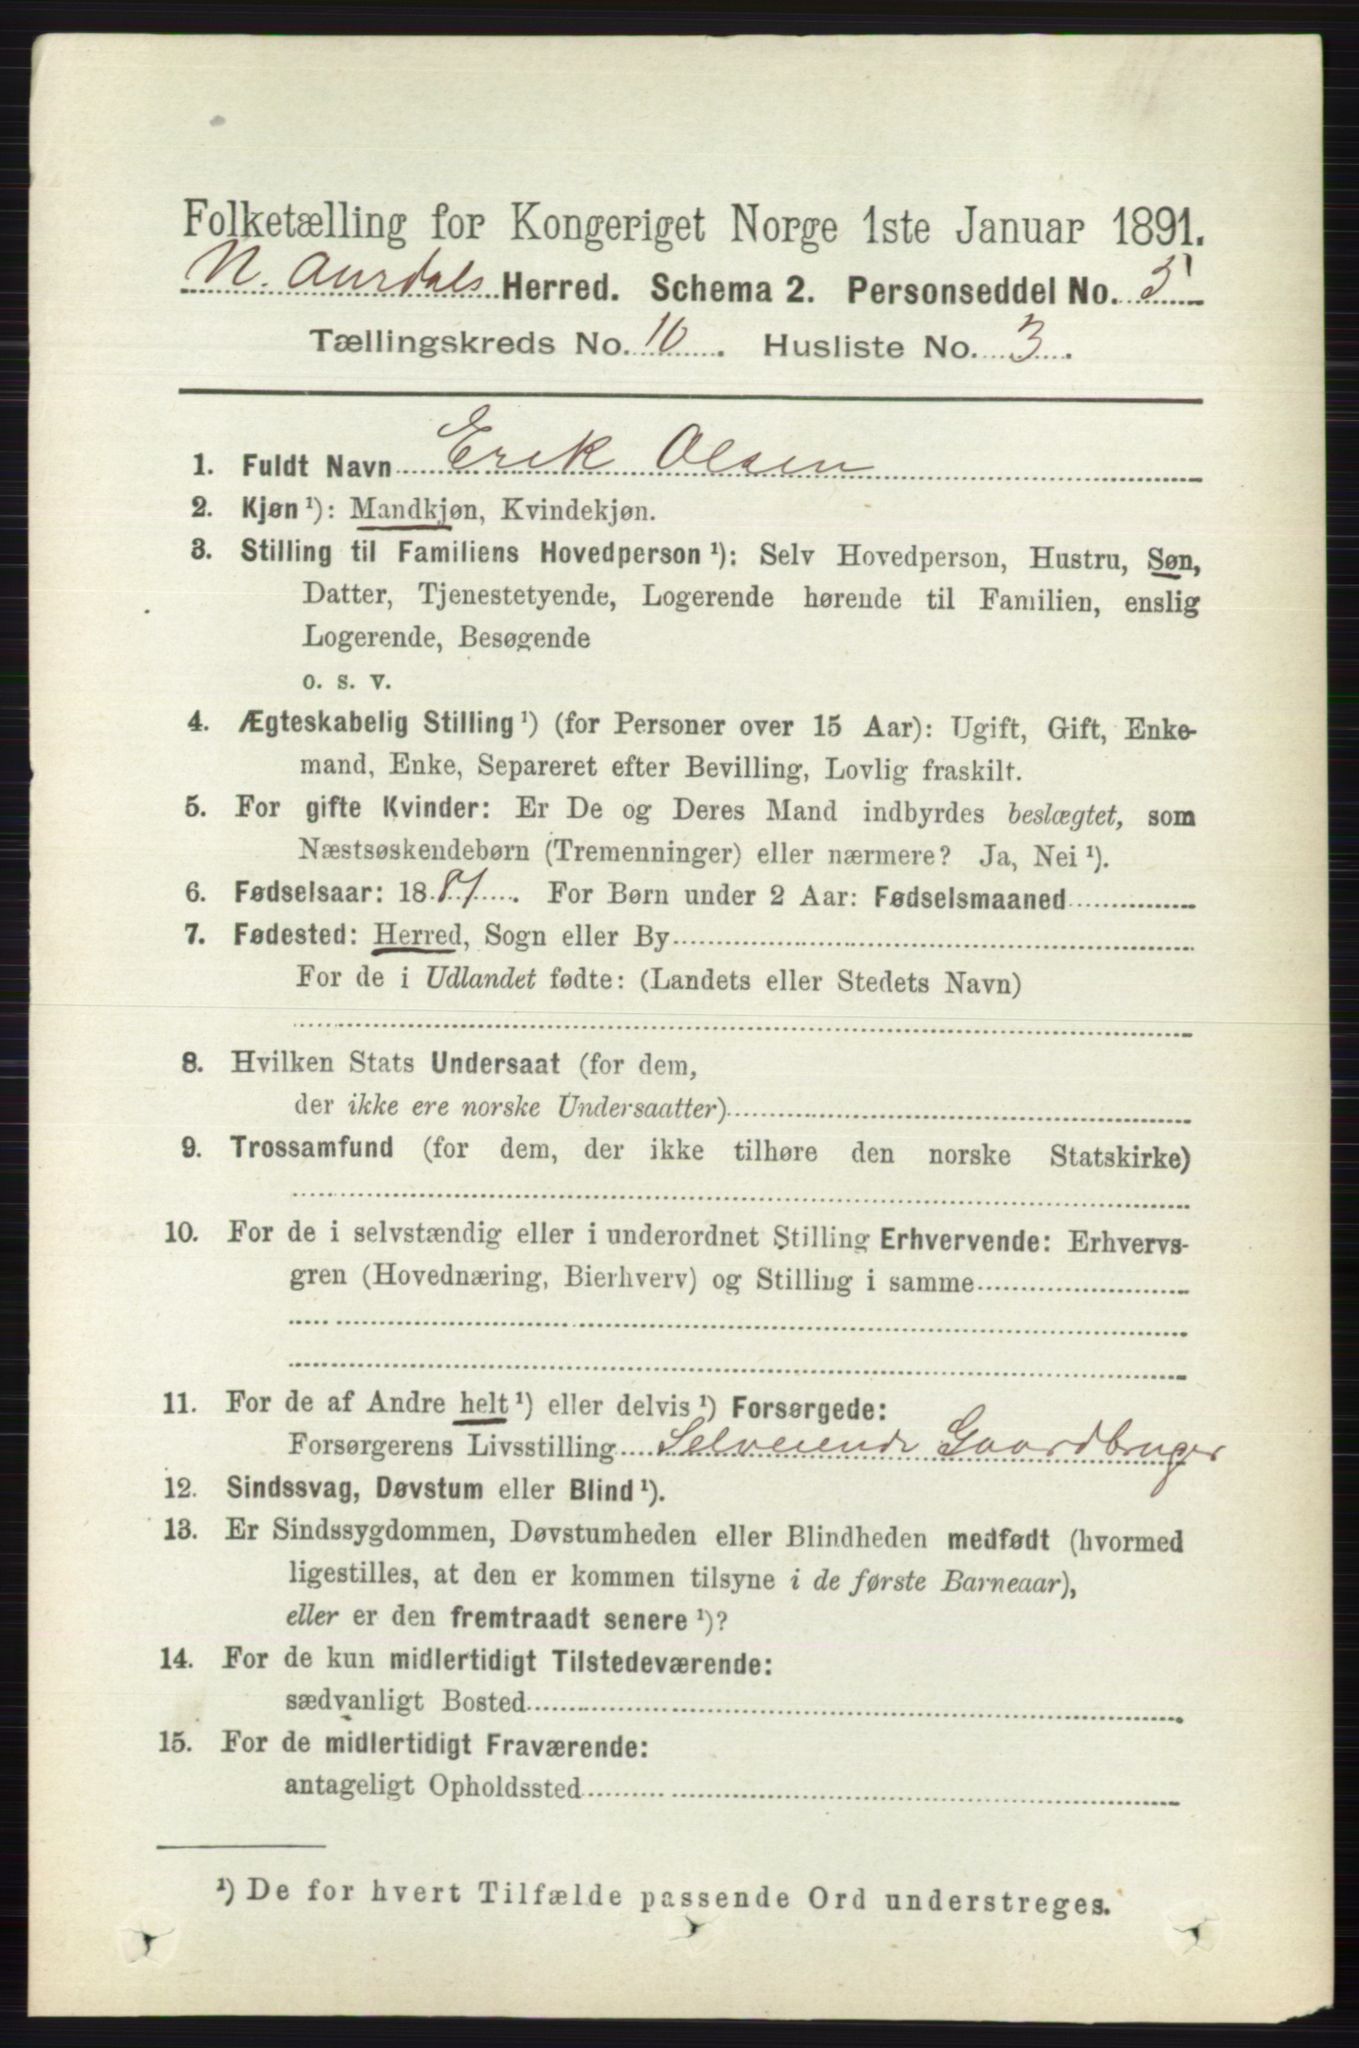 Folketælling for Kongeriget Norge 1ste Januar 1891.
N. Aurdals Herred. Schema 2. Personseddel No. 5
Tællingskreds No. 10. Husliste No. 3.
1. Fuldt Navn Erik Olsen
2. Kjøn ¹): Mandkjøn, Kvindekjøn.
3. Stilling til Familiens Hovedperson ¹): Selv Hovedperson, Hustru, Søn,
Datter, Tjenestetyende, Logerende hørende til Familien, enslig
Logerende, Besøgende
o. s. v.
4. Ægteskabelig Stilling ¹) (for Personer over 15 Aar): Ugift, Gift, Enke-
mand, Enke, Separeret efter Bevilling, Lovlig fraskilt.
5. For gifte Kvinder: Er De og Deres Mand indbyrdes beslægtet, som
Næstsøskendebørn (Tremenninger) eller nærmere? Ja, Nei ¹).
6. Fødselsaar: 1881. For Børn under 2 Aar: Fødselsmaaned
7. Fødested: Herred, Sogn eller By
For de i Udlandet fødte: (Landets eller Stedets Navn)
8. Hvilken Stats Undersaat (for dem,
der ikke ere norske Undersaatter)
9. Trossamfund (for dem, der ikke tilhøre den norske Statskirke)
10. For de i selvstændig eller i underordnet Stilling Erhvervende: Erhvervs-
gren (Hovednæring, Bierhverv) og Stilling i samme
11. For de af Andre helt ¹) eller delvis ¹) Forsørgede:
Forsørgerens Livsstilling Selveiende Gaardbruger
12. Sindssvag, Døvstum eller Blind ¹).
13. Er Sindssygdommen, Døvstumheden eller Blindheden medfødt (hvormed
ligestilles, at den er kommen tilsyne i de første Barneaar),
eller er den fremtraadt senere ¹)?
14. For de kun midlertidigt Tilstedeværende:
sædvanligt Bosted
15. For de midlertidigt Fraværende:
antageligt Opholdssted
¹) De for hvert Tilfælde passende Ord understreges.